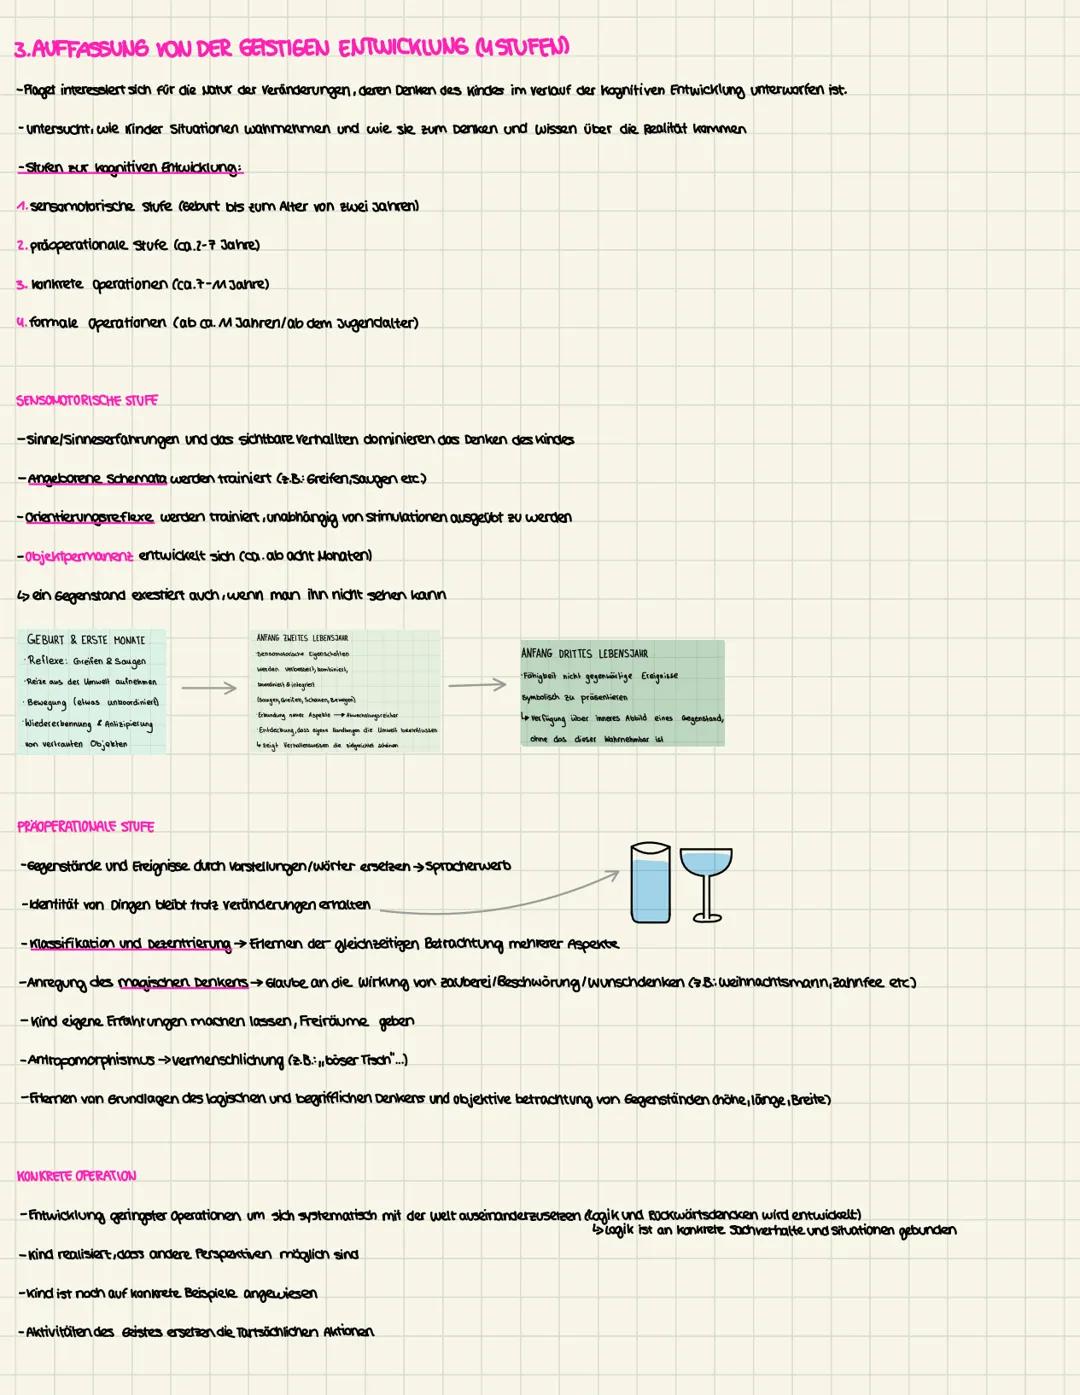 3.AUFFASSUNG VON DER GEISTIGEN ENTWICKLUNG (4 STUFEN)
-Piaget interessiert sich für die Natur der Veränderungen, deren Denken des Kindes im verlauf der kognitiven Entwicklung unterworfen ist.
-untersucht, wie Kinder Situationen wahrnehmen und wie sie zum Denken und Wissen über die Realität kommen
-Stufen zur kognitiven Entwicklung:
1. sensomotorische Stufe (Geburt bis zum Alter von zwei Jahren)
2. präoperationale Stufe (ca. 2-7 Jahre)
3. konkrete Operationen (ca. 7-11 Jahre)
4. formale Operationen (ab ca. 11 Jahren/ab dem Jugendalter)
SENSOMOTORISCHE STUFE
-Sinne/Sinneserfahrungen und das sichtbare Verhallten dominieren das Denken des Kindes
-Angeborene Schemata werden trainiert (z.B.: Greifen, Saugen etc.)
-Orientierungsreflexe werden trainiert, unabhängig von Stimulationen ausgeübt zu werden
-Objektpermanenz entwickelt sich (ca. ab acht Monaten)
↳ ein Gegenstand exestiert auch, wenn man ihn nicht sehen kann
GEBURT & ERSTE MONATE
·Reflexe: Greifen & Saugen
·Reize aus der Umwelt aufnehmen
·Bewegung (etwas unkoordiniert)
·Wiedererkennung & Antizipierung
von vertrauten Objekten
ANFANG ZWEITES LEBENSJAHR
·Sensomotorische Eigenschaften
werden verbessert, kombiniert,
koordiniert & integriert
(Saugen, Greifen, Schauen, Bewegen)
·Erkundung neuer Aspekte → Abwechslungsreicher
·Entdeckung, dass eigene Handlungen die Umwelt beeinflussen
↳ zeigt Verhaltensweisen die zielgerichtet scheinen
ANFANG DRITTES LEBENSJAHR
·Fähigkeit nicht gegenwärtige Ereignisse
symbolisch zu präsentieren
↳ Verfügung über inneres Abbild eines Gegenstand,
ohne das dieser Wahrnehmbar ist
PRÄOPERATIONALE STUFE
-Gegenstände und Ereignisse durch Vorstellungen/Wörter ersetzen → Spracherwerb
-Identität von Dingen bleibt trotz Veränderungen erhalten
-Klassifikation und Dezentrierung → Erlernen der gleichzeitigen Betrachtung mehrerer Aspekte
-Anregung des magischen Denkens → Glaube an die Wirkung von Zauberei/Beschwörung/Wunschdenken (z.B.: Weihnachtsmann, Zahnfee etc.)
-Kind eigene Erfahrungen machen lassen, Freiräume geben
-Antropomorphismus → vermenschlichung (z.B.: „böser Tisch"...)
-Erlernen von Grundlagen des logischen und begrifflichen Denkens und objektive betrachtung von Gegenständen (höhe, länge, Breite)
KONKRETE OPERATION
-Entwicklung geringster Operationen um sich systematisch mit der Welt auseinanderzusetzen (Logik und Rückwärtsdencken wird entwickelt)
↳ Logik ist an konkrete Sachverhalte und situationen gebunden
-Kind realisiert, dass andere Perspektiven möglich sind
-Kind ist noch auf konkrete Beispiele angewiesen
-Aktivitäten des Geistes ersetzen die Tartsächlichen Aktionen